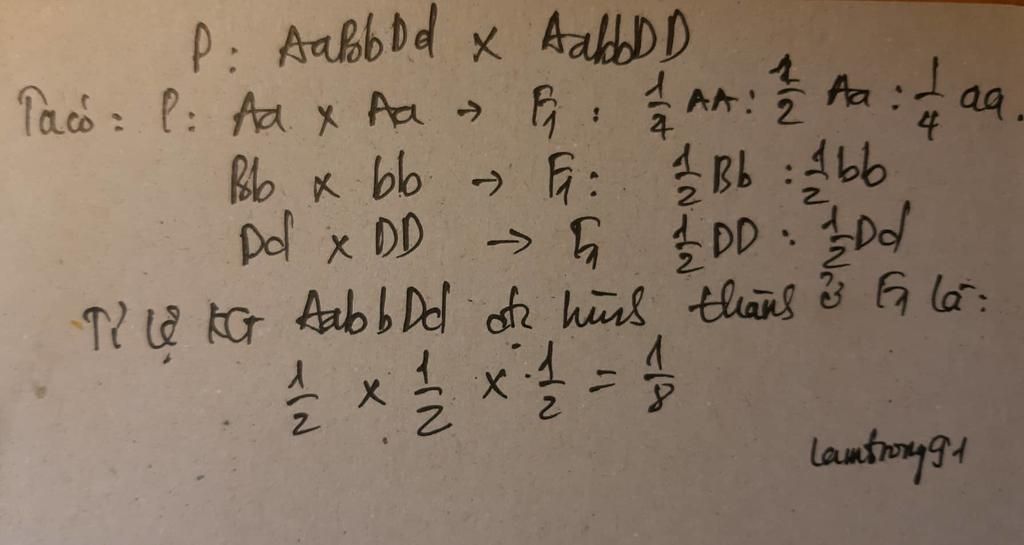 P: AaBbDd x AabbDD
Ta có: P: Aa x Aa → F1: 1/4 AA : 1/2 Aa : 1/4 aa.
Bb x bb → F1: 1/2 Bb : 1/2 bb
Dd x DD → F1 1/2 DD : 1/2 Dd
Tỉ lệ KG AabbDd đc hình thành ở F1 là:
1/2 x 1/2 x 1/2 = 1/8
lamtrong91